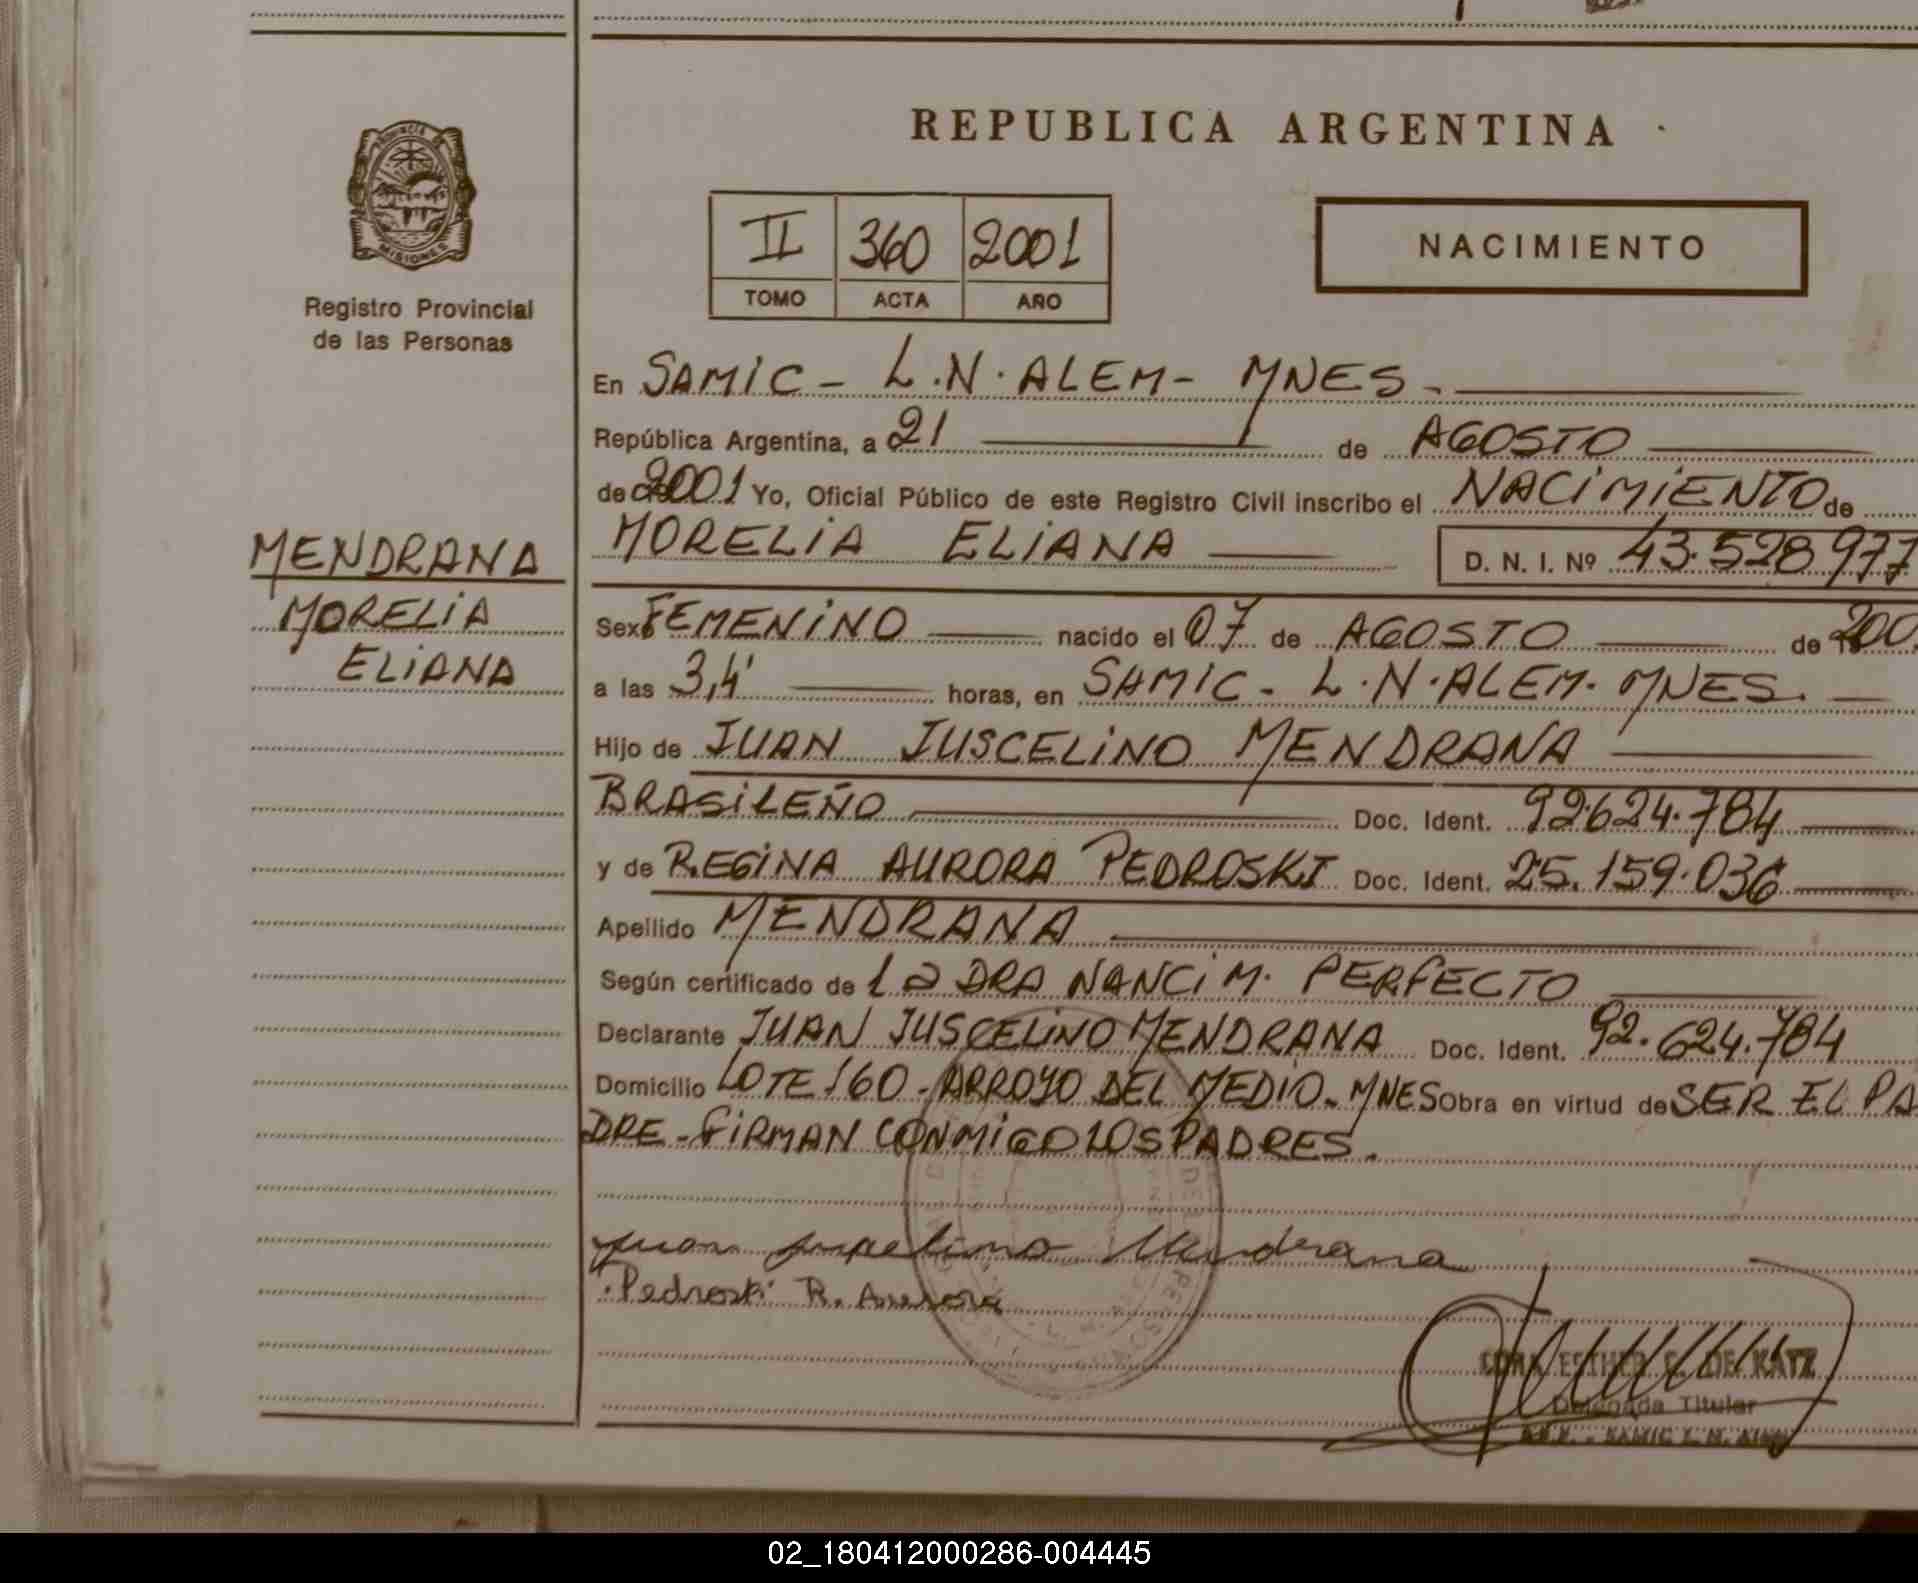 REPUBLICA ARGENTINA
PROVINCIA DE
MISIONES
Registro Provincial
de las Personas
II 360 2001
TOMO ACTA AÑO
NACIMIENTO
En SAMIC - L.N. ALEM - MNES.
República Argentina, a 21 de AGOSTO
de 2001 Yo, Oficial Público de este Registro Civil inscribo el NACIMIENTO de
MENDRANA
MORELIA
ELIANA
MORELIA ELIANA D. N. I. Nº 43.528 977
Sexo FEMENINO nacido el 07 de AGOSTO de 200
a las 3,4' horas, en SAMIC - L.N. ALEM - MNES.
Hijo de JUAN JUSCELINO MENDRANA
BRASILEÑO Doc. Ident. 92.624.784
y de REGINA AURORA PEDROSKI Doc. Ident. 25.159.036
Apellido MENDRANA
Según certificado de la DRA NANCI M. PERFECTO
Declarante JUAN JUSCELINO MENDRANA Doc. Ident. 92.624.784
Domicilio LOTE 160 - ARROYO DEL MEDIO - MNES Obra en virtud de SER EL PA
DRE - FIRMAN CONMIGO LOS PADRES.
Mendrana
Pedroski R. Aurora
ESTHER DE KATZ
Delegada Titular
SAMIC L. N. ALEM
02_180412000286-004445